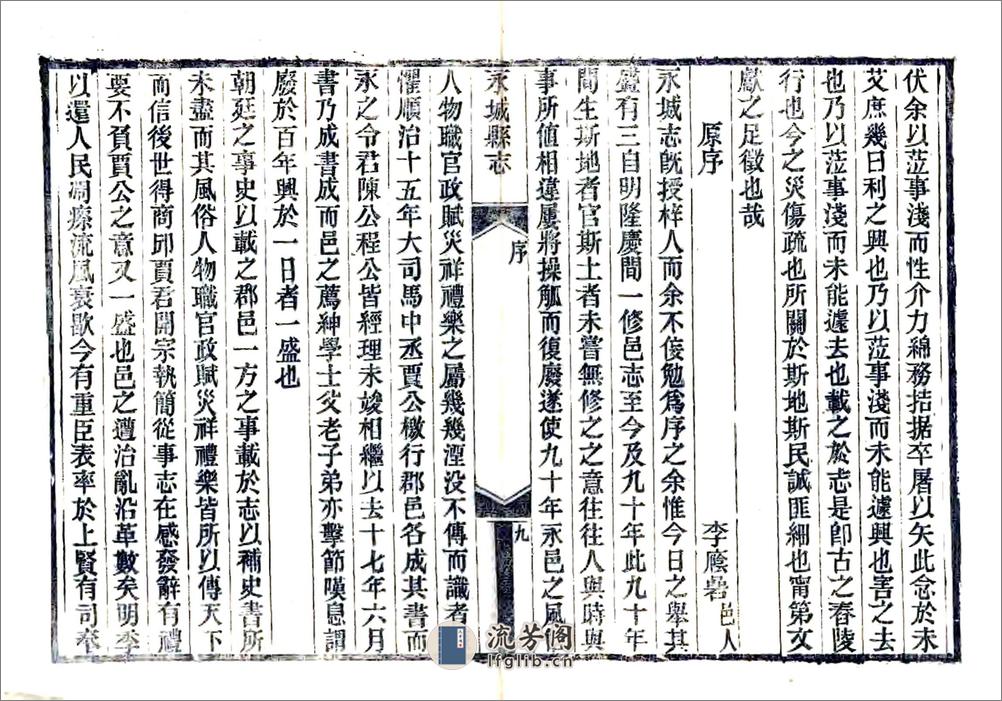 伏余以蒞事淺而性介力綿務拮据卒屠以矢此念於未
艾庶幾曰利之興也乃以蒞事淺而未能遽興也害之去
也乃以蒞事淺而未能遽去也載之於志是卽古之舂陵
行也今之災傷疏也所關於斯地斯民誠匪細也甯第文
獻之足徵也哉
原序
李廕嵒邑人
永城志旣授梓人而余不佞勉爲序之余惟今日之舉其
盛有三自明隆慶間一修邑志至今及九十年此九十年
間生斯地者官斯土者未嘗無修之之意往往人與時與
事所值相違屢將操觚而復廢遂使九十年永邑之風俗
永城縣志
序
九
人物職官政賦災祥禮樂之屬幾幾湮没不傳而識者
懼順治十五年大司馬中丞賈公檄行郡邑各成其書而
永之令君陳公程公皆經理未竣相繼以去十七年六月
書乃成書成而邑之薦紳學士父老子弟亦擊節嘆息謂
廢於百年興於一日者一盛也
朝廷之事史以載之郡邑一方之事載於志以補史書所
未盡而其風俗人物職官政賦災祥禮樂皆所以傳天下
而信後世得商邱賈君開宗執簡從事志在感發辭有禮
要不負賈公之意又一盛也邑之遭治亂沿革數矣明季
以還人民凋瘵流風衰歇今有重臣表率於上賢有司奉
流芳阁
lfglib.cn